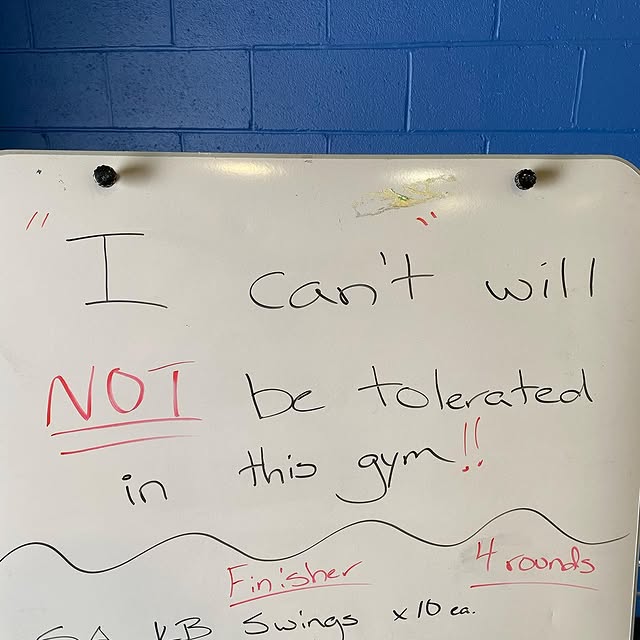 "I can't" will
NOT be tolerated
in this gym!!
Finisher 4 rounds
SA KB Swings x10 ea.